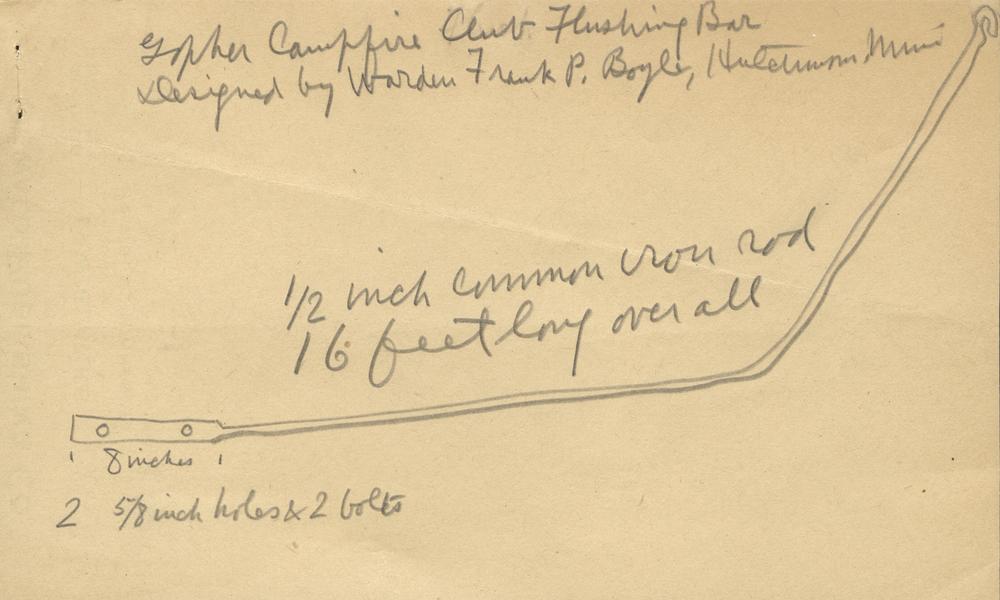 Gopher Campfire Club Flushing Bar
Designed by Warden Frank P. Boyle, Hutchinson, Minn
1/2 inch common iron rod
16 feet long over all
8 inches
2 5/8 inch holes & 2 bolts